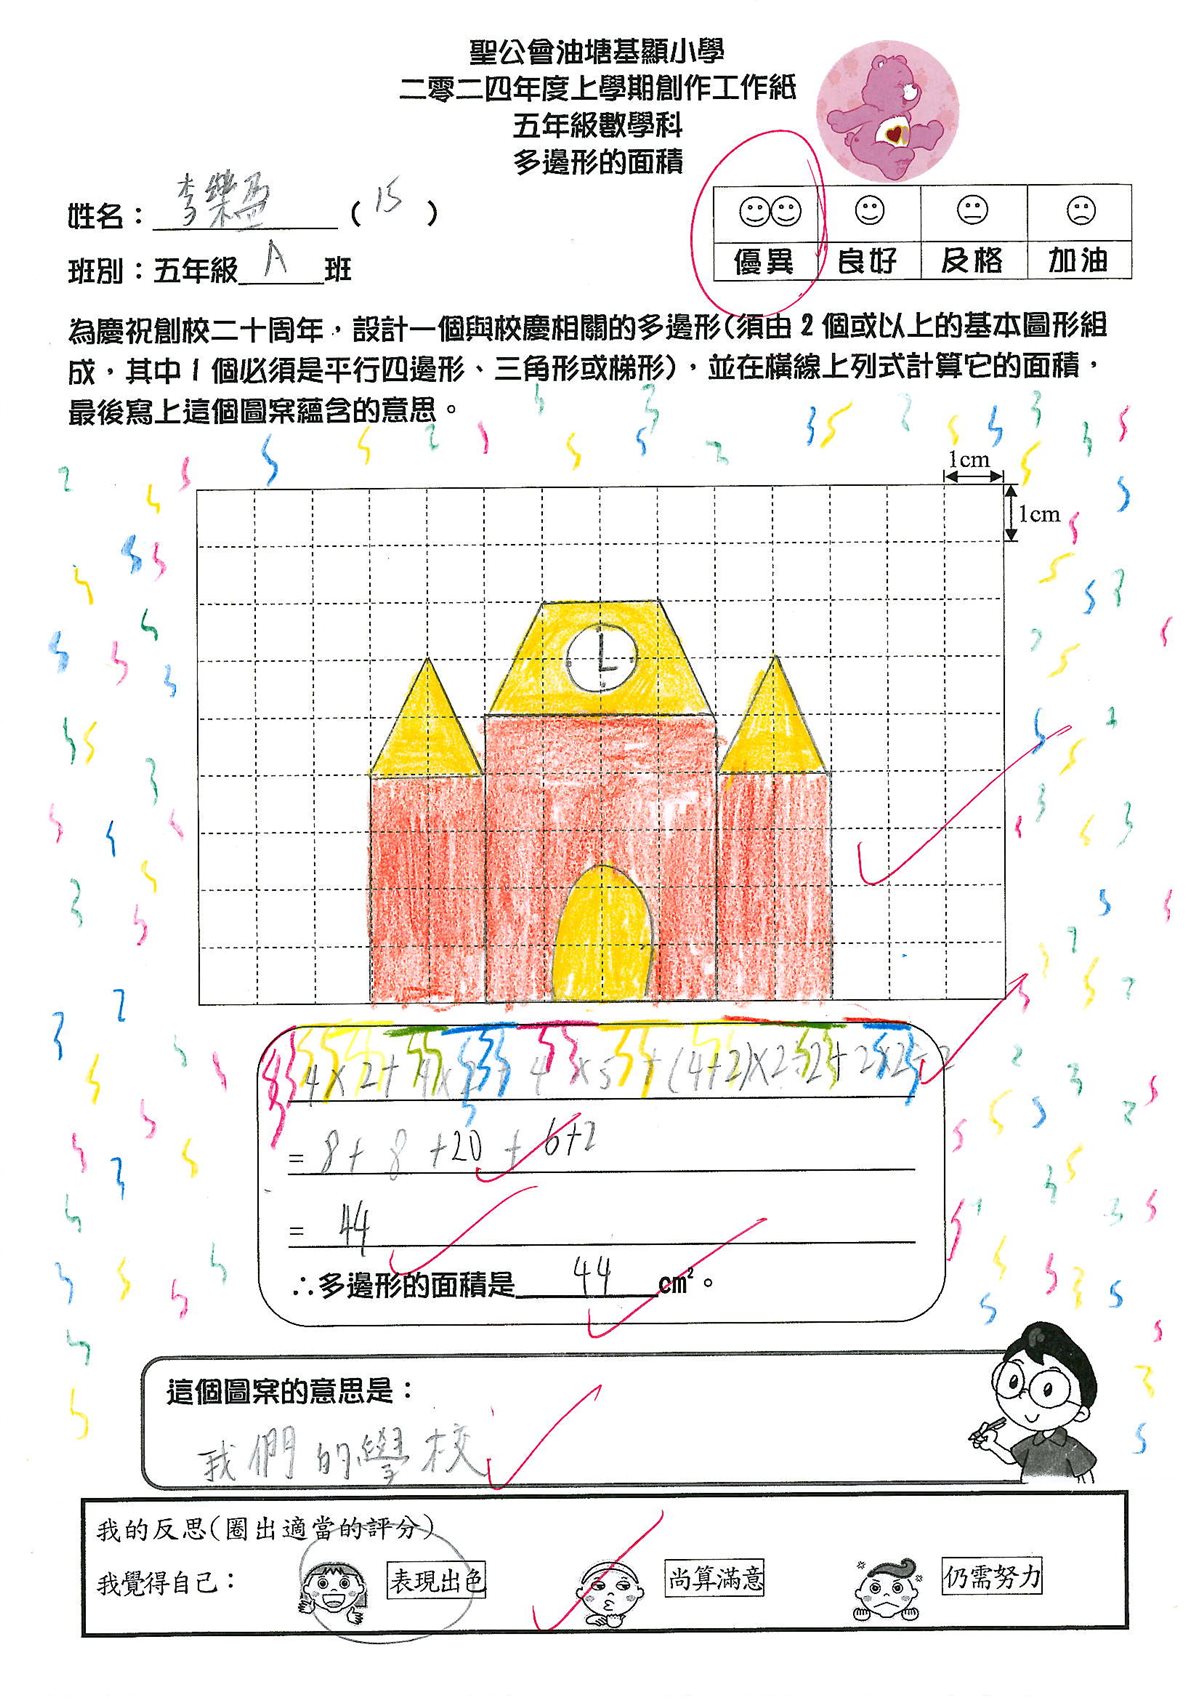 聖公會油塘基顯小學
二零二四年度上學期創作工作紙
五年級數學科
多邊形的面積
姓名：李樂盈 ( 15 )
班別：五年級 A 班
優異 良好 及格 加油
為慶祝創校二十周年，設計一個與校慶相關的多邊形(須由 2 個或以上的基本圖形組
成，其中 1 個必須是平行四邊形、三角形或梯形)，並在橫線上列式計算它的面積，
最後寫上這個圖案蘊含的意思。
1cm
1cm
4 × 2 + 4 × 4 × 5 + (4+2)×2÷2+ 2×2÷2
= 8 + 8 + 20 + 6+2
= 44
∴多邊形的面積是 44 cm²。
這個圖案的意思是：
我們的學校
我的反思(圈出適當的評分)
我覺得自己： 表現出色 尚算滿意 仍需努力